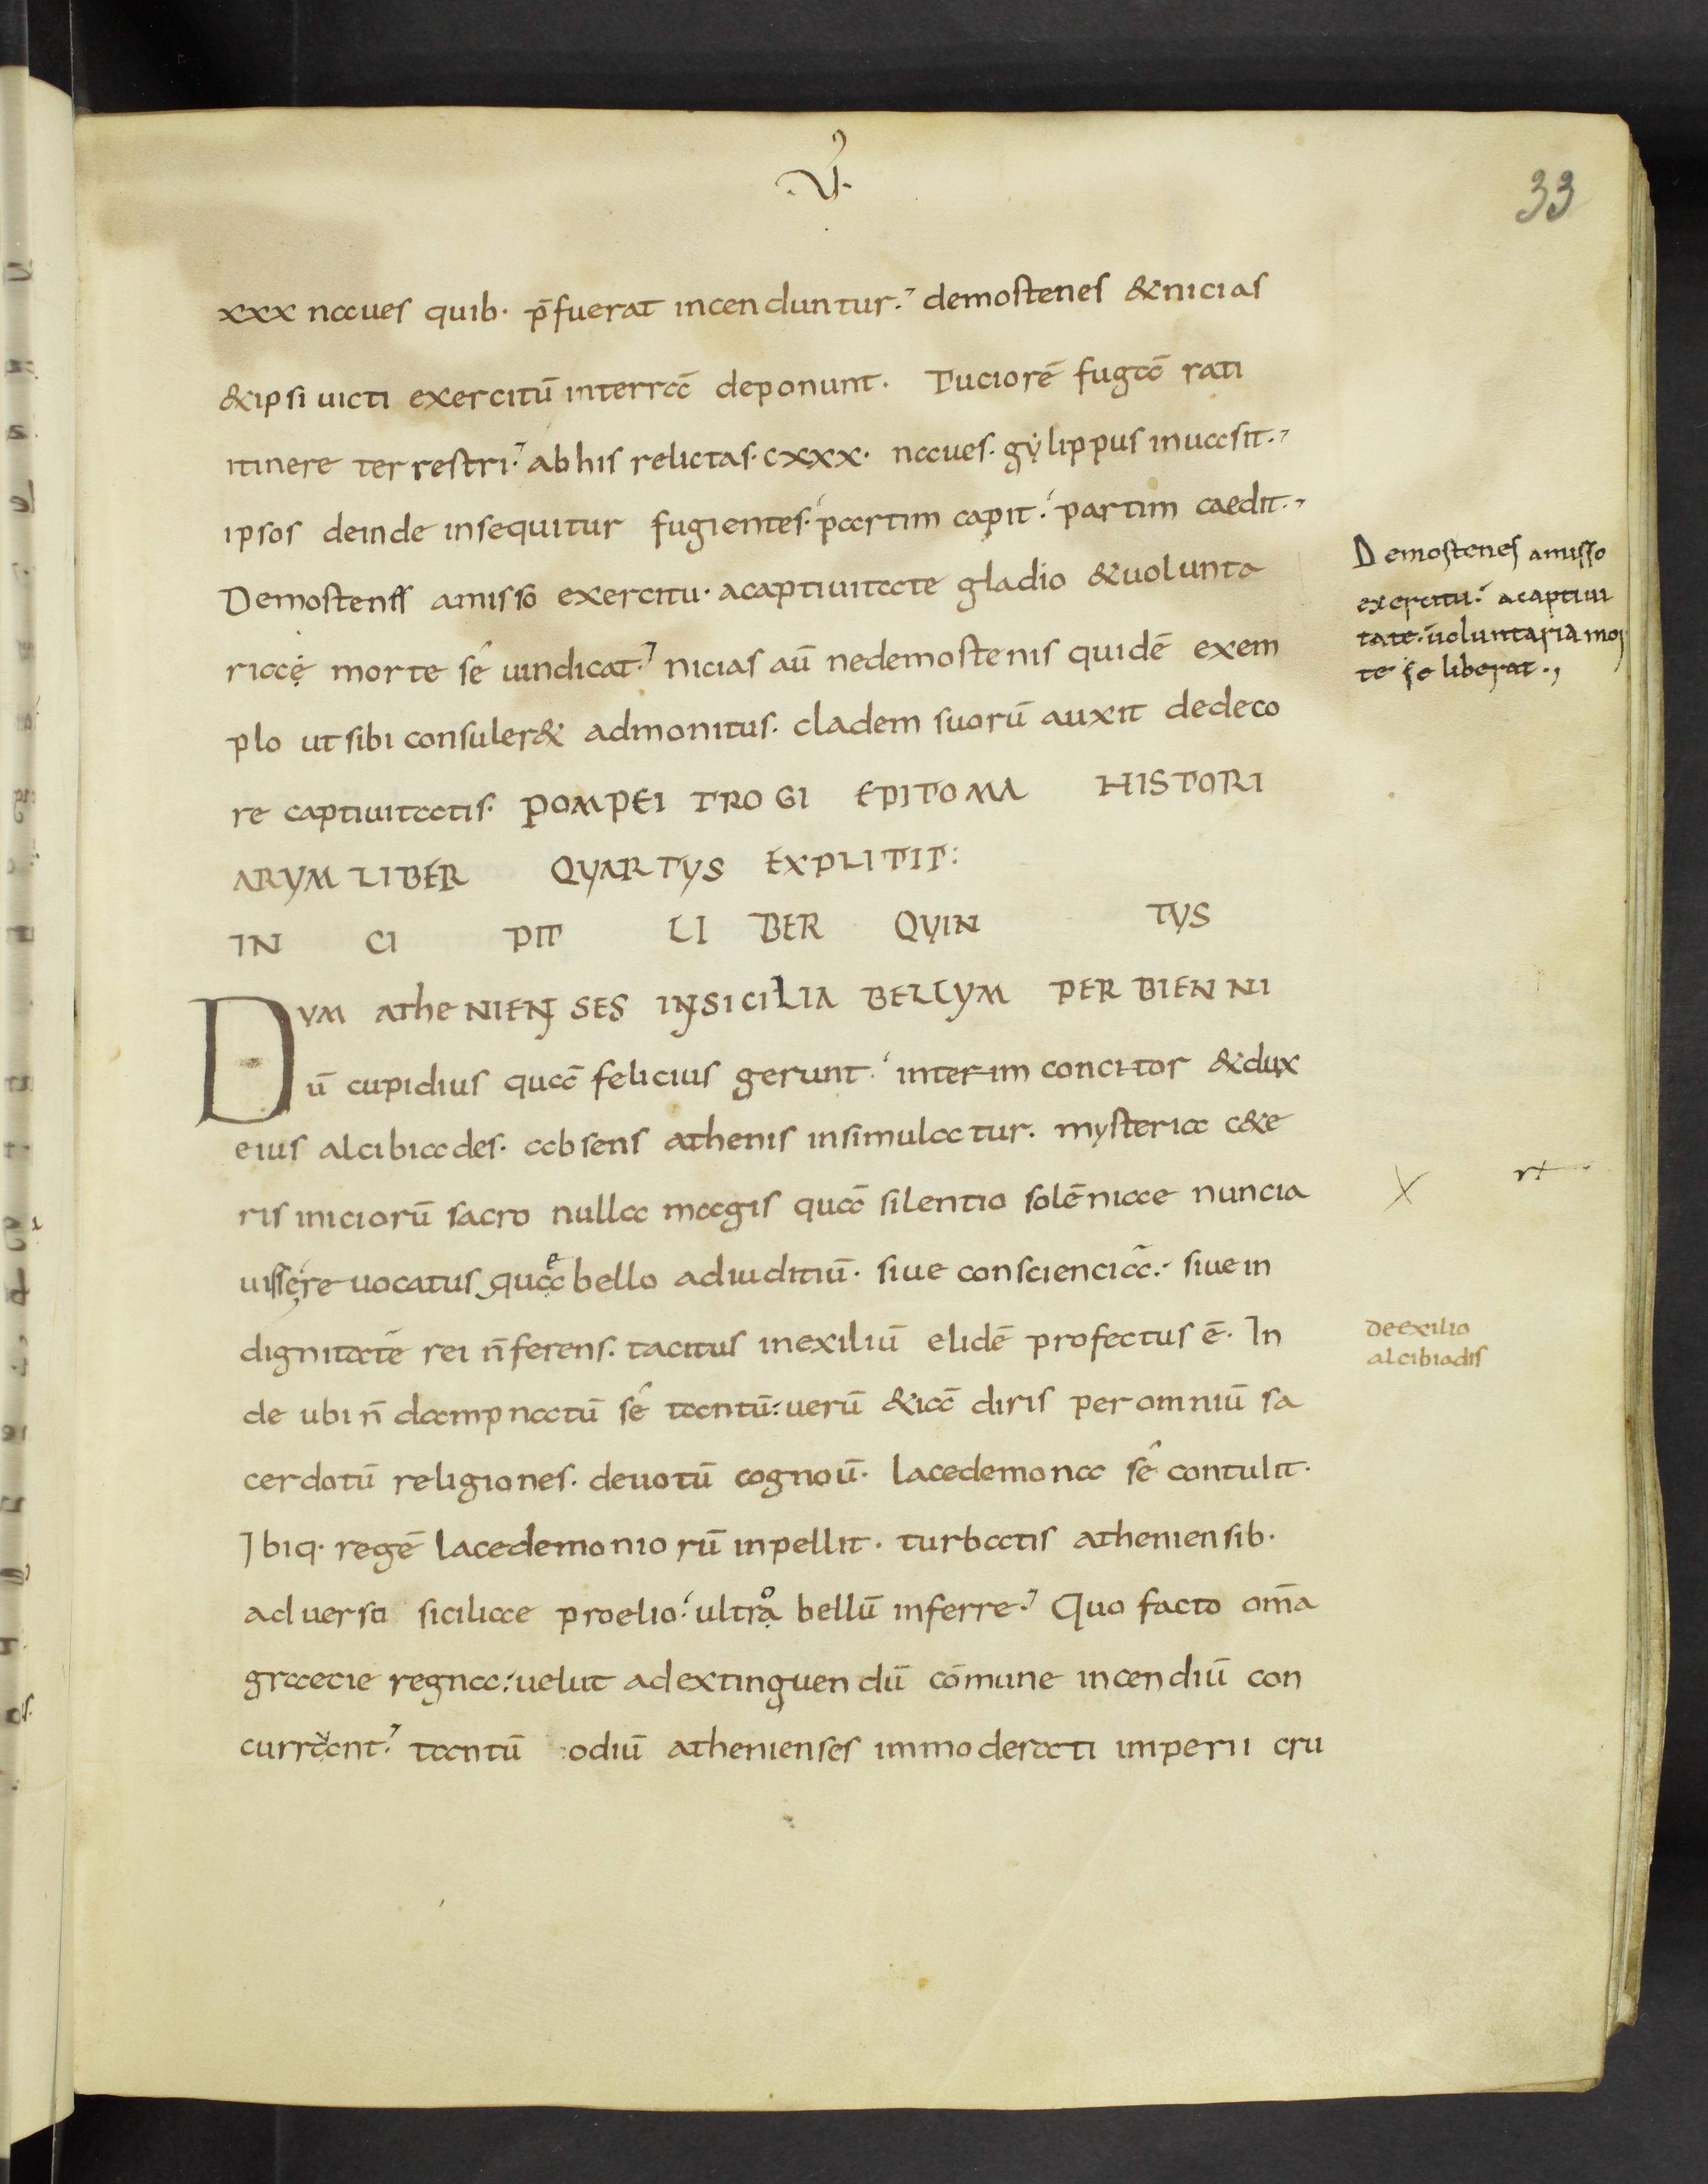 .V.
33
xxx naues quib· p̄fuerat incenduntur· demostenes & nicias
& ipsi uicti exercitū interrā deponunt· Tuciorē fugā rati
itinere terrestri· abhis relictas· cxxx· naues· gylippus inuasit·
ipsos deinde insequitur fugientes· partim capit· partim caedit·
Demostenes amisso exercitu· acaptiuitate gladio & uolunta
riae morte se uindicat· nicias aū nedemostenis quidē exem
plo ut sibi consuler& admonitus· cladem suorū auxit dedeco
re captiuitatis· POMPEI TROGI EPITOMA HISTORI
ARVM LIBER QVARTVS EXPLITIT:
IN CI PIT LI BER QVIN TVS
DVM atheNIENSES INSICILIA BELLVM PER BIENNI
ū cupidius quā felicius gerunt· interim concitor & dux
eius alcibiades· absens athenis insimulatur· mysteria c&e
ris iniciorū sacro nulla magis quā silentio solēniae nuncia
uissere uocatus quae bello adiuditiū· siue conscienciā· siue in
dignitatē rei n̄ferens· tacitus inexiliū elidē profectus ē· In
de ubi n̄ dampnatū se tantū· uerū & iā diris per omniū sa
cerdotū religiones· deuotū cognoū· lacedemona se contulit·
Ibiq· regē lacedemoniorū inpellit· turbatis atheniensib·
aduerso siciliae proelio· ultroa bellū inferre· Quo facto om̄a
graecie regna· uelut adextinguendū cōmune incendiū con
currant· tantū odiū athenienses immoderati imperii cru
Demostenes amisso
exercitu· acaptiui
tate· uoluntaria mor
te se liberat·,
deexilio
alcibiadis